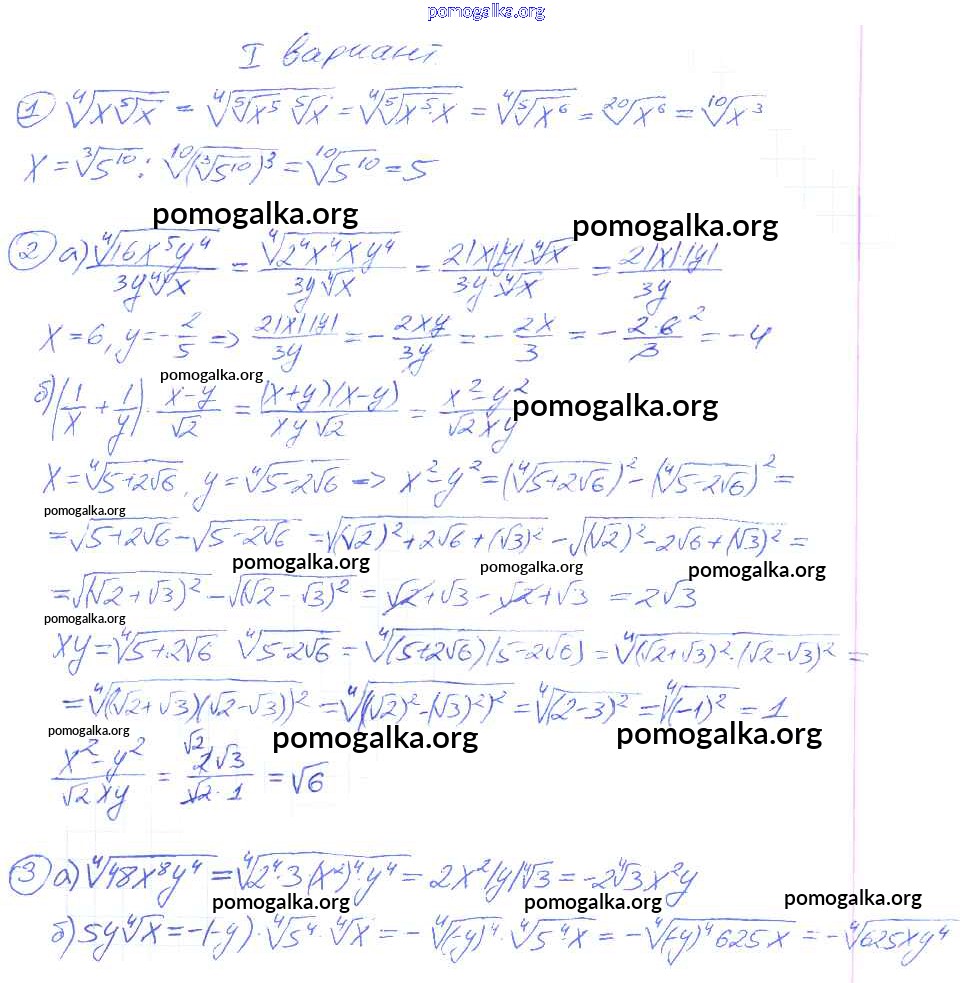 pomogalka.org
I вариант.
① ⁴√(x⁵√x) = ⁴√(⁵√x⁵ ⁵√x) = ⁴√(⁵√(x⁵·x)) = ⁴√(⁵√x⁶) = ²⁰√x⁶ = ¹⁰√x³
x = ³√5¹⁰ : ¹⁰√(³√5¹⁰)³ = ¹⁰√5¹⁰ = 5
pomogalka.org pomogalka.org
② а) ⁴√(16x⁵y⁴) / (3y⁴√x) = ⁴√(2⁴x⁴xy⁴) / (3y⁴√x) = 2|x||y|·⁴√x / (3y·⁴√x) = 2|x|·|y| / 3y
x = 6, y = -2/5 => 2|x||y| / 3y = - 2xy / 3y = - 2x / 3 = - 2·6² / 3 = -4
pomogalka.org
б) (1/x + 1/y) · (x-y)/√2 = (x+y)(x-y) / (xy√2) = (x²-y²) / (√2xy)
pomogalka.org
x = ⁴√(5+2√6), y = ⁴√(5-2√6) => x²-y² = (⁴√(5+2√6))² - (⁴√(5-2√6))² =
pomogalka.org
= √(5+2√6) - √(5-2√6) = √((√2)²+2√6+(√3)²) - √((√2)²-2√6+(√3)²) =
pomogalka.org pomogalka.org pomogalka.org
= √(√2+√3)² - √(√2-√3)² = √2+√3-√2+√3 = 2√3
pomogalka.org
xy = ⁴√(5+2√6) ⁴√(5-2√6) = ⁴√((5+2√6)(5-2√6)) = ⁴√((√2+√3)²·(√2-√3)²) =
= ⁴√((√2+√3)(√2-√3))² = ⁴√((√2)²-(√3)²)² = ⁴√(2-3)² = ⁴√(-1)² = 1
pomogalka.org pomogalka.org pomogalka.org
(x²-y²) / (√2xy) = √2 2√3 / (√2·1) = √6
③ а) ⁴√(48x⁸y⁴) = ⁴√(2⁴·3·(x²)⁴·y⁴) = 2x²|y|⁴√3 = -2⁴√3x²y
pomogalka.org pomogalka.org pomogalka.org
б) 5y⁴√x = -(-y)·⁴√5⁴·⁴√x = - ⁴√(-y)⁴·⁴√(5⁴x) = -⁴√((-y)⁴625x) = -⁴√(625xy⁴)